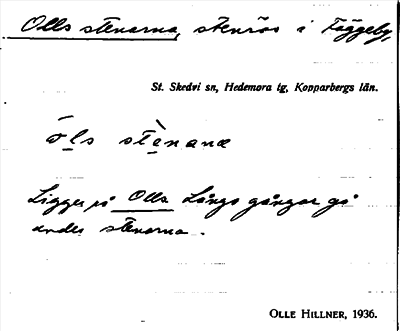 Olls stenarna, stenrös i Fäggeby,
St. Skedvi sn, Hedemora tg, Kopparbergs län.
ōls stènanæ
Ligger på Olls Långs gångar på
under stenarna.
OLLE HILLNER, 1936.